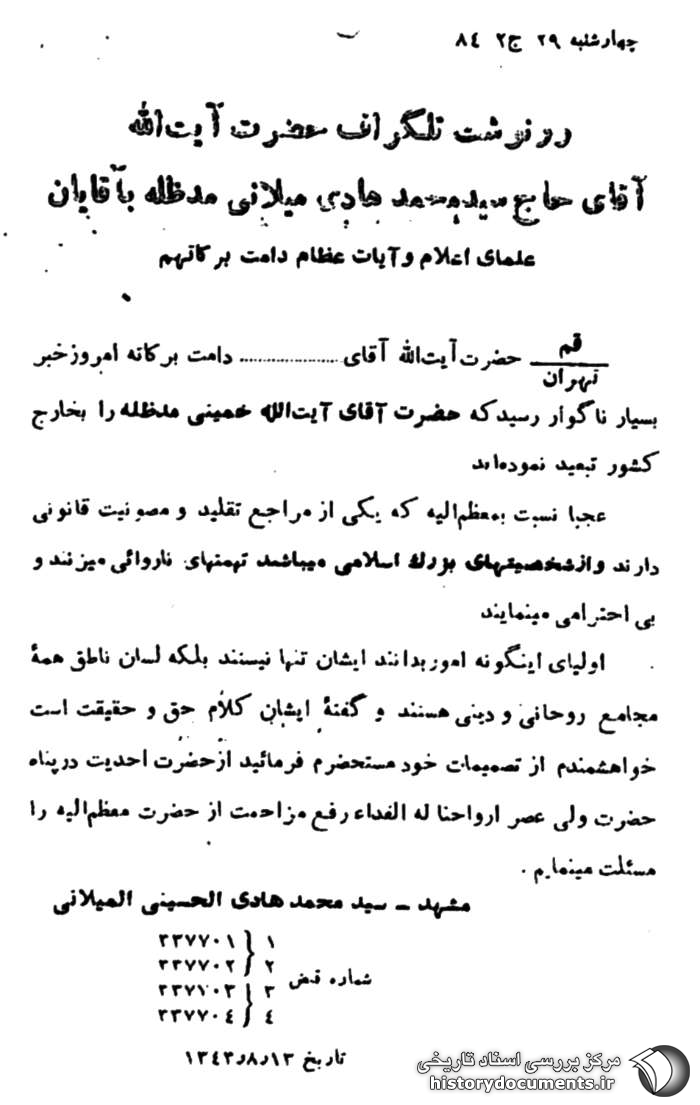 چهارشنبه ۲۹ ج۲ ۸۴
رونوشت تلگراف حضرت آیت‌الله
آقای حاج سیدمحمد هادی میلانی مدظله بآقایان
علمای اعلام و آیات عظام دامت برکاتهم
قم
تهران
حضرت آیت‌الله آقای .................... دامت برکاته امروز خبر
بسیار ناگوار رسید که حضرت آقای آیت‌الله خمینی مدظله را بخارج
کشور تبعید نموده‌اند
عجبا نسبت بمعظم‌الیه که یکی از مراجع تقلید و مصونیت قانونی
دارند و از شخصیتهای بزرگ اسلامی میباشند تهمتهای ناروائی میزنند و
بی احترامی مینمایند
اولیای اینگونه امور بدانند ایشان تنها نیستند بلکه لسان ناطق همهٔ
مجامع روحانی و دینی هستند و گفتهٔ ایشان کلام حق و حقیقت است
خواهشمندم از تصمیمات خود مستحضرم فرمائید از حضرت احدیت در پناه
حضرت ولی عصر ارواحنا له الفداء رفع مزاحمت از حضرت معظم‌الیه را
مسئلت مینمایم .
مشهد ـ سید محمد هادی الحسینی المیلانی
شماره قبض
۱ ۲۳۷۷۰۱
۲ ۲۳۷۷۰۲
۳ ۲۳۷۷۰۳
۴ ۲۳۷۷۰۴
تاریخ ۱۳ر۸ر۱۳۴۳
مرکز بررسی اسناد تاریخی
historydocuments.ir